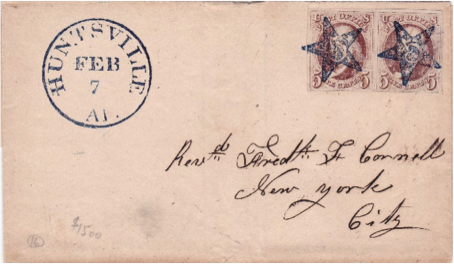 HUNTSVILLE
FEB
7
Al.
U S
POST OFFICE
5 5
FIVE CENTS
U S
POST OFFICE
5 5
FIVE CENTS
Revd. Fredk. F Cornell
New york
City
$1500
16